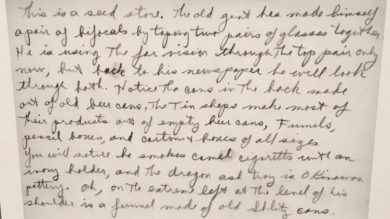 This is a seed store. The old gent has made himself
a pair of bifocals by taping two pairs of glasses together.
He is using the far vision through the top pair only
now, but back to his newspaper he will look
through both. Notice the cans in the back made
out of old beer cans. The Tin shops make most of
their products out of empty beer cans, Funnels,
pencil boxes, and cartons & boxes of all sizes
You will notice he smokes camel cigaretts with an
ivory holder, and the dragon ash tray is Okinawan
pottery. Oh, on the extreme left at the level of his
shoulder is a funnel made of old schlitz cans.